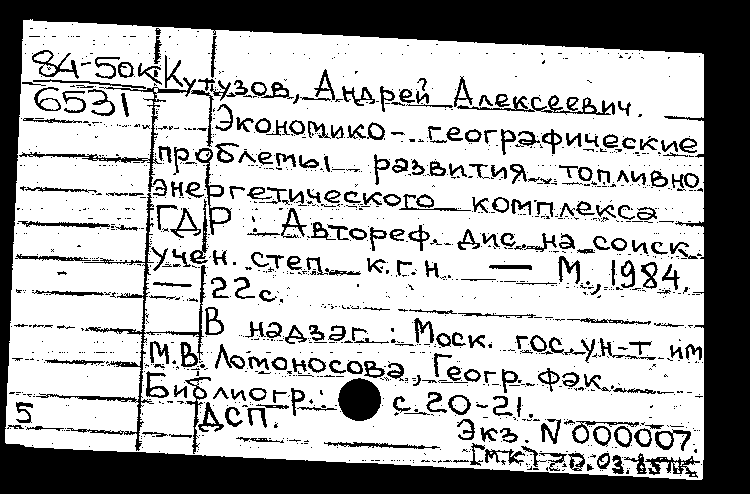 84-50к Кутузов, Андрей Алексеевич.
6531 Экономико- географические
проблемы развития топливно
энергетического комплекса
ГДР : Автореф. дис на соиск
учен. степ. к.г.н. — М., 1984.
— 22 с.
В надзаг. : Моск. гос. ун-т им
М.В. Ломоносова, Геогр. фак.
Библиогр.: с. 20-21.
5 ДСП.
Экз. N 000007.
[М.К]